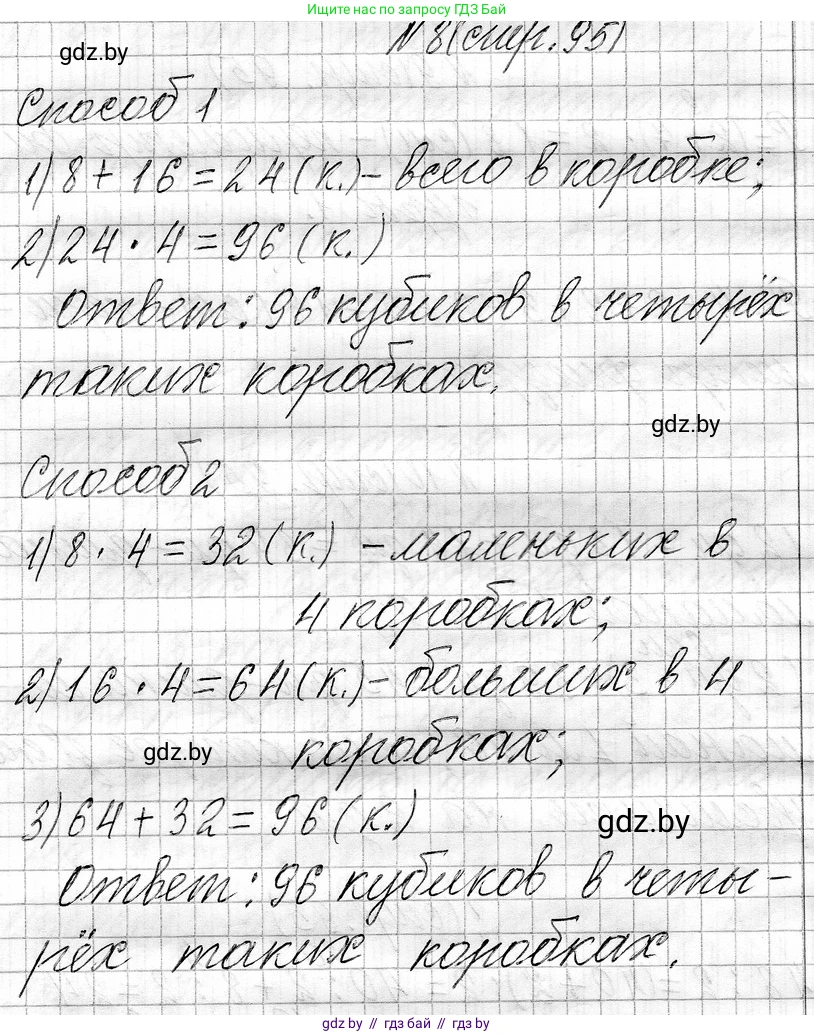 Решение заданий на сайте ГДЗ Бай
№8(стр.95)
gdz.by
Способ 1
1) 8 + 16 = 24 (к.) - всего в коробке;
2) 24 · 4 = 96 (к.)
Ответ: 96 кубиков в четырёх
таких коробках.
gdz.by
Способ 2
1) 8 · 4 = 32 (к.) - маленьких в
4 коробках;
2) 16 · 4 = 64 (к.) - больших в 4
коробках;
gdz.by
3) 64 + 32 = 96 (к.)
gdz.by
Ответ: 96 кубиков в четы-
рёх таких коробках.
gdz.by // гдз бай // gdz.by